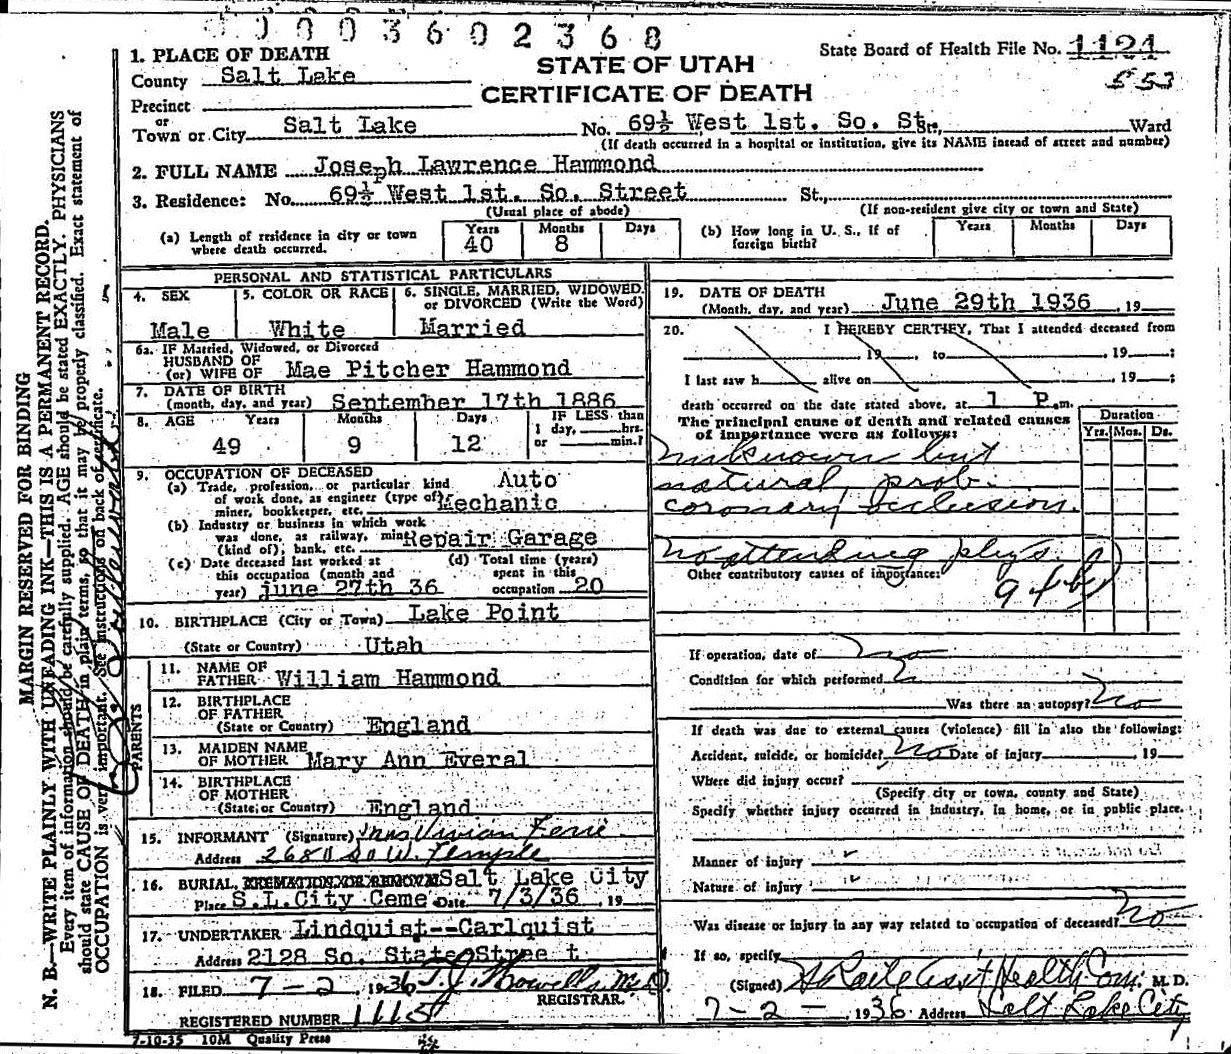 0003602368
State Board of Health File No. 1121
553
STATE OF UTAH
CERTIFICATE OF DEATH
1. PLACE OF DEATH
County Salt Lake
Precinct
or
Town or City Salt Lake No. 69½ West 1st. So. St. St., Ward
(If death occurred in a hospital or institution, give its NAME instead of street and number)
2. FULL NAME Joseph Lawrence Hammond
3. Residence: No. 69½ West 1st. So. Street St.,
(Usual place of abode) (If non-resident give city or town and State)
(a) Length of residence in city or town where death occurred. Years 40 Months 8 Days
(b) How long in U. S., if of foreign birth? Years Months Days
PERSONAL AND STATISTICAL PARTICULARS
4. SEX Male
5. COLOR OR RACE White
6. SINGLE, MARRIED, WIDOWED, or DIVORCED (Write the Word) Married
6a. IF Married, Widowed, or Divorced
HUSBAND OF
(or) WIFE OF Mae Pitcher Hammond
7. DATE OF BIRTH
(month, day, and year) September 17th 1886
8. AGE Years 49 Months 9 Days 12 IF LESS than 1 day, hrs. or min.?
9. OCCUPATION OF DECEASED
(a) Trade, profession, or particular kind of work done, as engineer (type of) miner, bookkeeper, etc. Auto Mechanic
(b) Industry or business in which work was done, as railway, mine (kind of), bank, etc. Repair Garage
(c) Date deceased last worked at this occupation (month and year) June 27th 36
(d) Total time (years) spent in this occupation 20
10. BIRTHPLACE (City or Town) Lake Point
(State or Country) Utah
PARENTS
11. NAME OF FATHER William Hammond
12. BIRTHPLACE OF FATHER
(State or Country) England
13. MAIDEN NAME OF MOTHER Mary Ann Everal
14. BIRTHPLACE OF MOTHER
(State or Country) England
15. INFORMANT (Signature) Mrs Vivian Ferre
Address 2680 So W. Temple
16. BURIAL, CREMATION OR REMOVAL Salt Lake City
Place S.L.City Ceme Date 7/3/36, 19
17. UNDERTAKER Lindquist--Carlquist
Address 2128 So. State Stree t
18. FILED 7-2 1936 M.D.
REGISTRAR.
REGISTERED NUMBER 1115
7-10-35 10M Quality Press
19. DATE OF DEATH
(Month, day, and year) June 29th 1936, 19
20. I HEREBY CERTIFY, That I attended deceased from
, 19 , to , 19 ;
I last saw h alive on , 19 ;
death occurred on the date stated above, at 1 P.m.
The principal cause of death and related causes of importance were as follows:
Duration
Yrs. Mos. Ds.
unknown but
natural, prob.
coronary occlusion.
No attending phys.
Other contributory causes of importance:
94(b)
If operation, date of no
Condition for which performed
Was there an autopsy? No
If death was due to external causes (violence) fill in also the following:
Accident, suicide, or homicide? No Date of injury , 19
Where did injury occur?
(Specify city or town, county and State)
Specify whether injury occurred in industry, in home, or in public place.
Manner of injury
Nature of injury
Was disease or injury in any way related to occupation of deceased? No
If so, specify
(Signed) Asst Health Com. M. D.
7-2- 1936 Address Salt Lake City
MARGIN RESERVED FOR BINDING
N. B.—WRITE PLAINLY WITH UNFADING INK—THIS IS A PERMANENT RECORD.
Every item of information should be carefully supplied. AGE should be stated EXACTLY. PHYSICIANS
should state CAUSE OF DEATH in plain terms, so that it may be properly classified. Exact statement of
OCCUPATION is very important. See instructions on back of certificate.